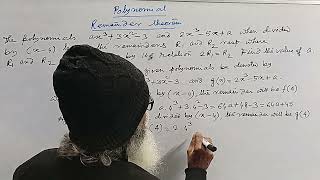 Polynomial
Remainder theorem
The polynomials ax³+3x²-3 and 2x³-5x+a when divided
by (x-4) the remainders R₁ and R₂ rest where
R₁ and R₂ by relation 2R₁=R₂ Find the value of a
given polynomials be denote by
+3x²-3 and g(x)=2x³-5x+a
by (x-4) the remainder will be f(4)
a.4³+3.4²-3=64a+48-3=64a+45
divided by (x-4) the remainder will be g(4)
(4)=2.4³